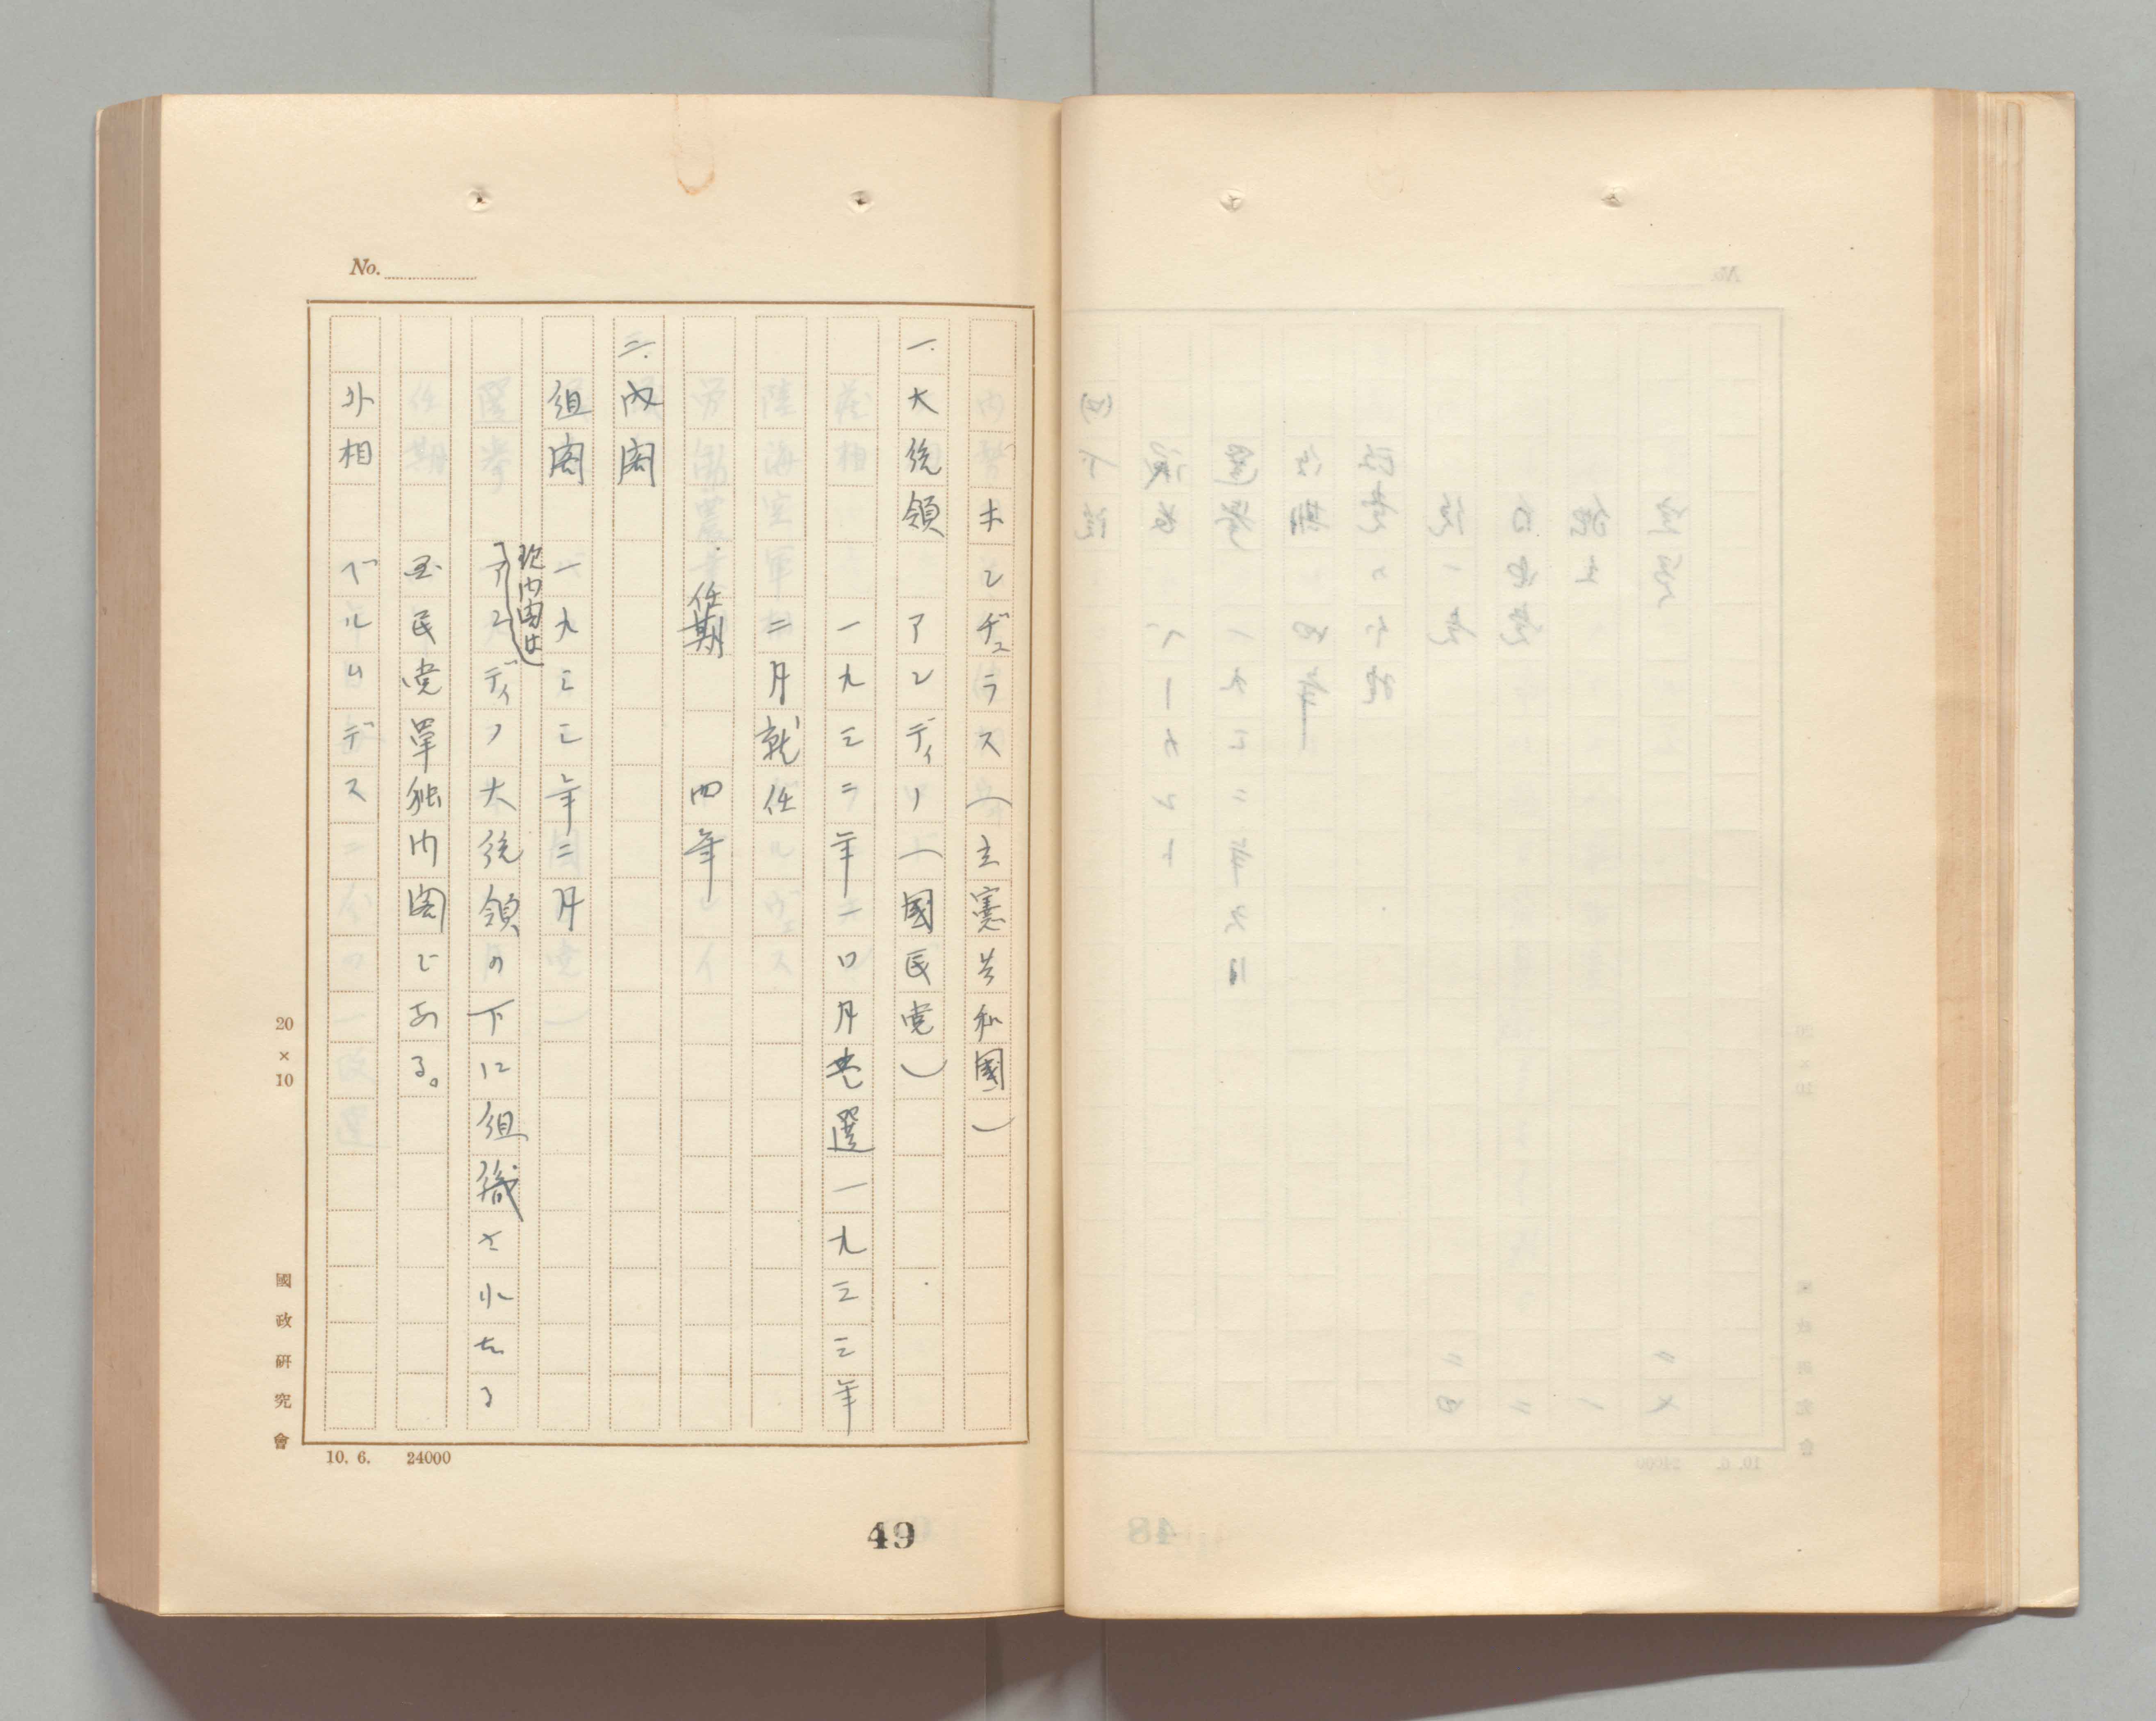 No.
ホンヂュラス（立憲共和國）
一.大統領 アンディノ（國民党）
一九三二年一〇月当選一九三三年
二月就任
任期 四年
二.内閣
組閣 一九三三年二月
現内閣は
アンディノ大統領の下に組織されたる
国民党単独内閣である。
外相 ベルムデス
20×10
國政研究會
10. 6. 24000
49